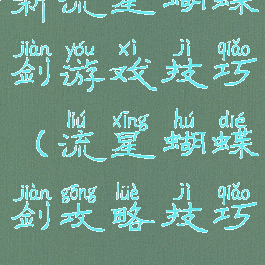 新流星蝴蝶
jiàn yóu xì jì qiǎo
剑游戏技巧
liú xīng hú dié
(流星蝴蝶
jiàn gōng lüè jì qiǎo
剑攻略技巧